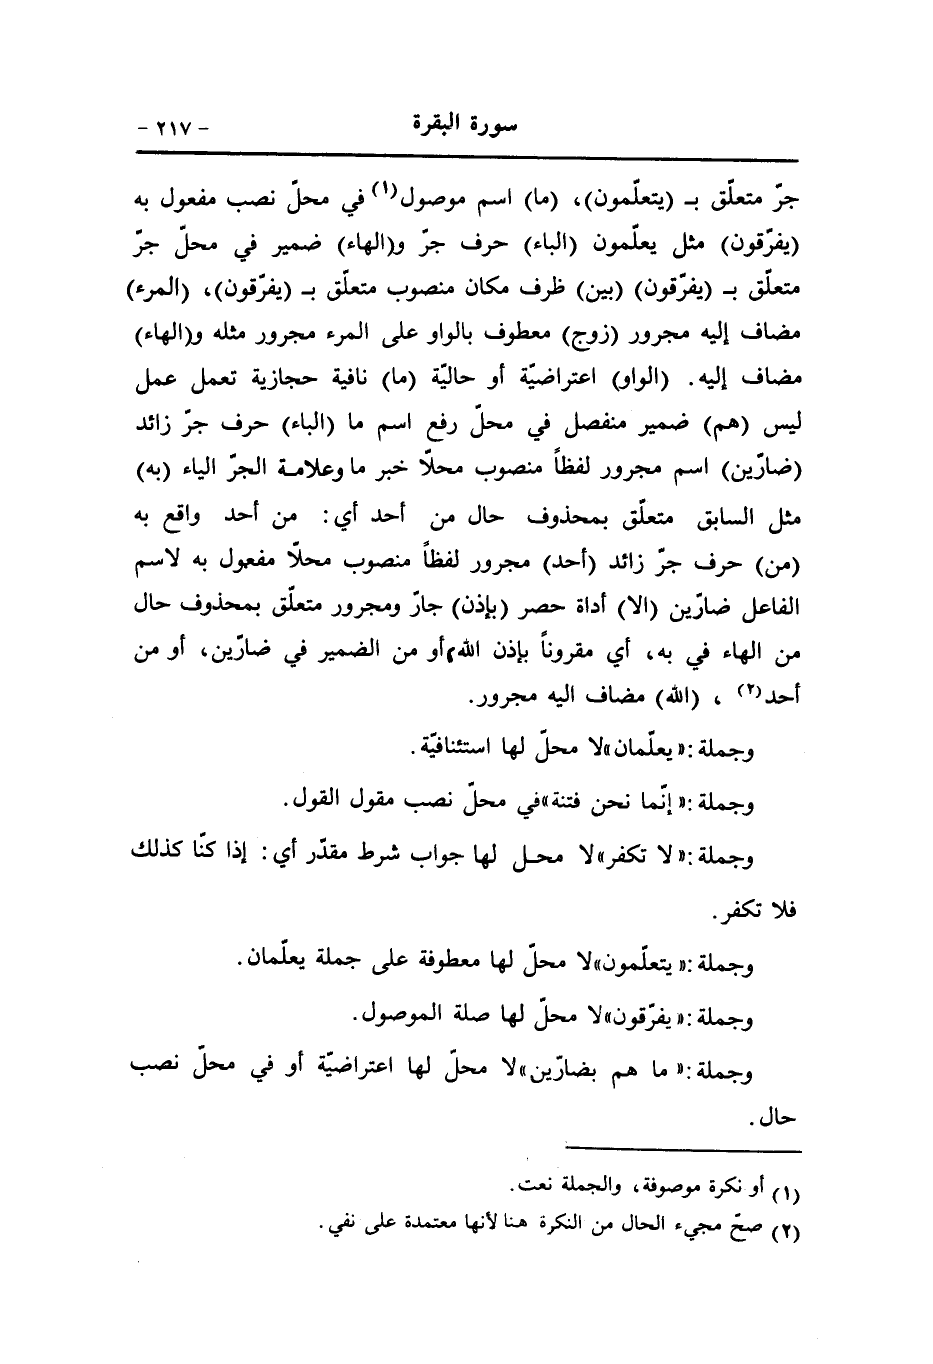 سورة البقرة - ٢١٧ -
جرّ متعلّق بـ (يتعلّمون)، (ما) اسم موصول(١) في محلّ نصب مفعول به
(يفرّقون) مثل يعلّمون (الباء) حرف جرّ و(الهاء) ضمير في محلّ جرّ
متعلّق بـ (يفرّقون) (بين) ظرف مكان منصوب متعلّق بـ (يفرّقون)، (المرء)
مضاف إليه مجرور (زوج) معطوف بالواو على المرء مجرور مثله و(الهاء)
مضاف إليه. (الواو) اعتراضيّة أو حاليّة (ما) نافية حجازية تعمل عمل
ليس (هم) ضمير منفصل في محلّ رفع اسم ما (الباء) حرف جرّ زائد
(ضارّين) اسم مجرور لفظاً منصوب محلّا خبر ما وعلامة الجرّ الياء (به)
مثل السابق متعلّق بمحذوف حال من أحد أي: من أحد واقع به
(من) حرف جرّ زائد (أحد) مجرور لفظاً منصوب محلّا مفعول به لاسم
الفاعل ضارّين (الا) أداة حصر (بإذن) جارّ ومجرور متعلّق بمحذوف حال
من الهاء في به، أي مقروناً بإذن الله، أو من الضمير في ضارّين، أو من
أحد(٢) ، (الله) مضاف اليه مجرور.
وجملة: «يعلّمان» لا محلّ لها استئنافيّة.
وجملة: «إنّما نحن فتنة» في محلّ نصب مقول القول.
وجملة: «لا تكفر» لا محل لها جواب شرط مقدّر أي: إذا كنّا كذلك
فلا تكفر.
وجملة: «يتعلّمون» لا محلّ لها معطوفة على جملة يعلّمان.
وجملة: «يفرّقون» لا محلّ لها صلة الموصول.
وجملة: «ما هم بضارّين» لا محلّ لها اعتراضيّة أو في محلّ نصب
حال.
(١) أو نكرة موصوفة، والجملة نعت.
(٢) صحّ مجيء الحال من النكرة هنا لأنها معتمدة على نفي.